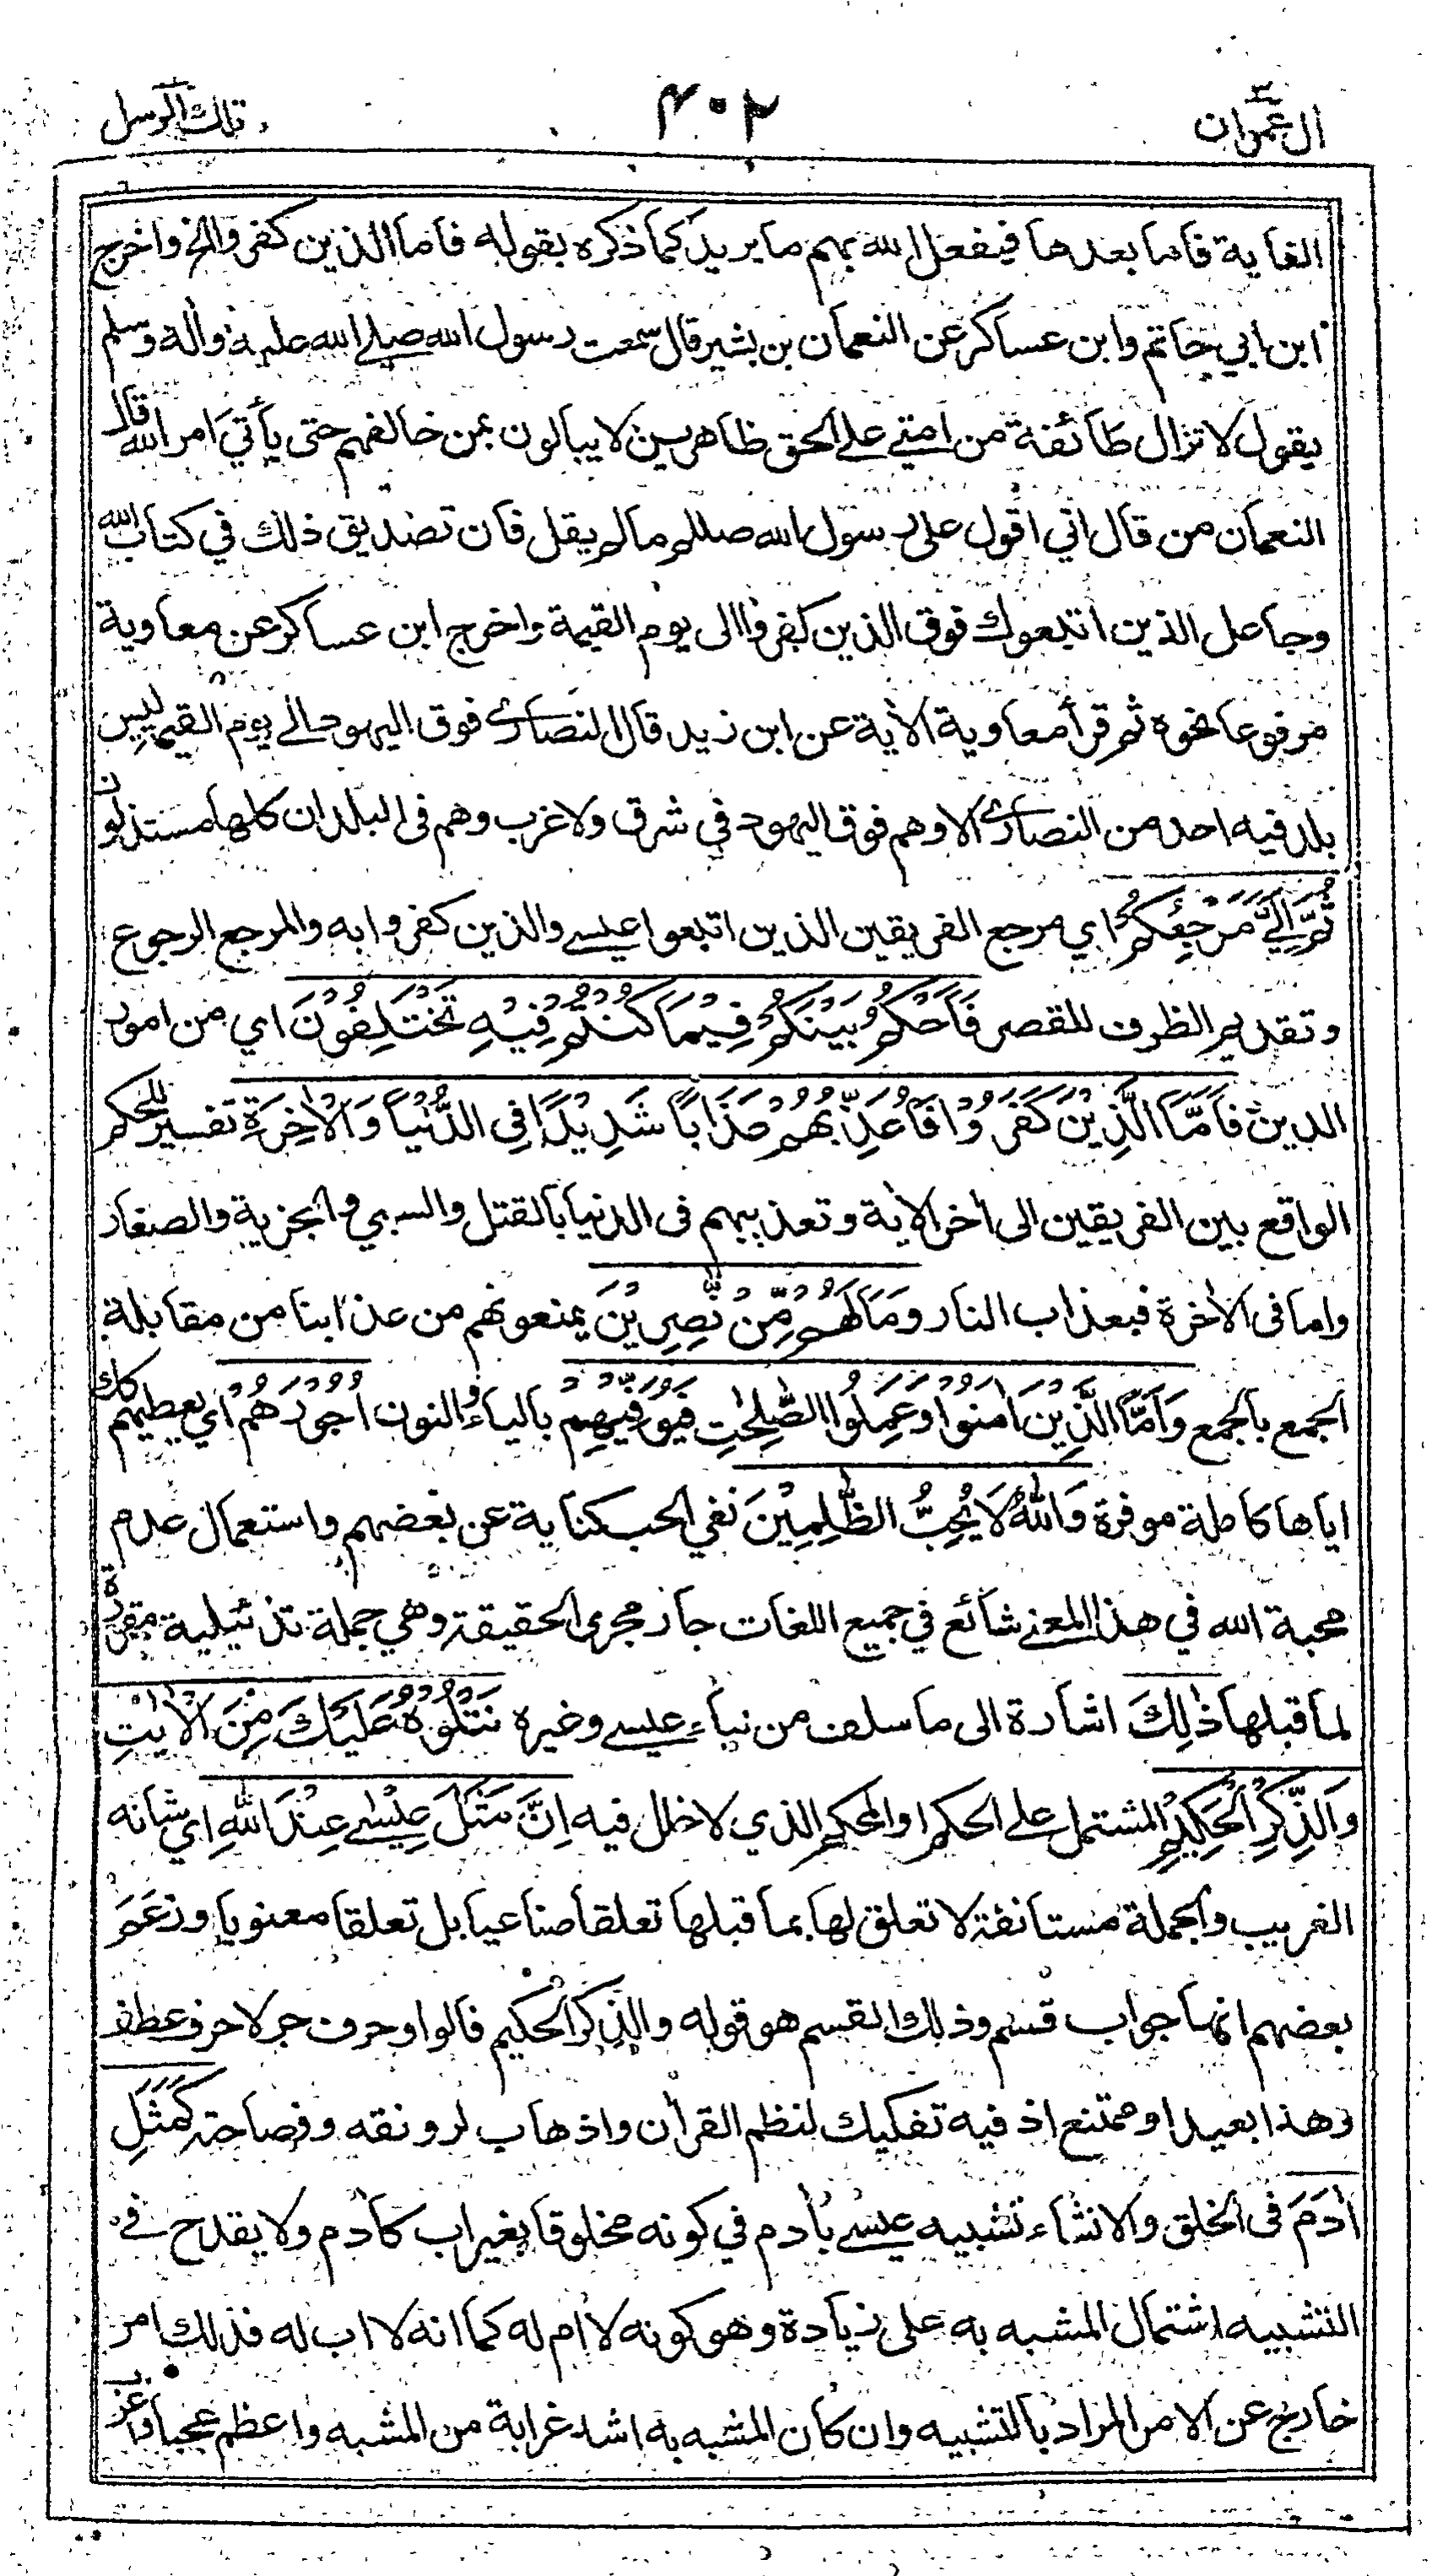 اٰل عمران ٣
٤٠٢
تلك الرسل
الغاية فاما بعدها فيفعل الله بهم ما يريد كما ذكره بقوله فاما الذين كفروا الخ واخرج
ابن ابي حاتم وابن عساكر عن النعمان بن بشير قال سمعت رسول الله صلى الله عليه واله وسلم
يقول لا تزال طائفة من امتي على الحق ظاهرين لا يبالون بمن خالفهم حتى يأتي امر الله قال
النعمان من قال اني اقول على رسول الله صللم ما لم يقل فان تصديق ذلك في كتاب الله
وجاعل الذين اتبعوك فوق الذين كفروا الى يوم القيمة واخرج ابن عساكر عن معاوية
مرفوعا نحوه ثم قرأ معاوية الاٰية عن ابن زيد قال النصارى فوق اليهود الى يوم القيمة ليس
بلد فيه احد من النصارى الا وهم فوق اليهود في شرق ولا غرب وهم في البلدان كلها مستذلون
ثُمَّ اِلَيَّ مَرْجِعُكُمْ اي مرجع الفريقين الذين اتبعوا عيسى والذين كفروا به والمرجع الرجوع
وتقديم الظرف للقصر فَاَحْكُمُ بَيْنَكُمْ فِيْمَا كُنْتُمْ فِيْهِ تَخْتَلِفُوْنَ اي من امور
الدين فَاَمَّا الَّذِيْنَ كَفَرُوْا فَاُعَذِّبُهُمْ عَذَابًا شَدِيْدًا فِي الدُّنْيَا وَالْاٰخِرَةِ تفسير للحكم
الواقع بين الفريقين الى اٰخر الاٰية وتعذيبهم في الدنيا بالقتل والسبي والجزية والصغار
واما في الاٰخرة فبعذاب النار وَمَا لَهُمْ مِّنْ نّٰصِرِيْنَ يمنعونهم من عذابنا من مقابلة
الجمع بالجمع وَاَمَّا الَّذِيْنَ اٰمَنُوْا وَعَمِلُوا الصّٰلِحٰتِ فَيُوَفِّيْهِمْ بالياء والنون اُجُوْرَهُمْ اي يعطيهم
اياها كاملة موفرة وَاللّٰهُ لَا يُحِبُّ الظّٰلِمِيْنَ نفي الحب كناية عن بغضهم واستعمال عدم
محبة الله في هذا المعنى شائع في جميع اللغات جار مجرى الحقيقة وهي جملة تذييلية مقررة
لما قبلها ذٰلِكَ اشارة الى ما سلف من نبأ عيسى وغيره نَتْلُوْهُ عَلَيْكَ مِنَ الْاٰيٰتِ
وَالذِّكْرِ الْحَكِيْمِ المشتمل على الحكم او المحكم الذي لا خلل فيه اِنَّ مَثَلَ عِيْسٰى عِنْدَ اللّٰهِ اي شانه
الغريب والجملة مستانفة لا تعلق لها بما قبلها تعلقا صناعيا بل تعلقا معنويا وزعم
بعضهم انها جواب قسم وذلك القسم هو قوله والذكر الحكيم فالواو حرف جر لا حرف عطف
وهذا بعيد او ممتنع اذ فيه تفكيك لنظم القراٰن واذهاب لرونقه وفصاحته كَمَثَلِ
اٰدَمَ في الخلق والانشاء تشبيه عيسى باٰدم في كونه مخلوقا بغير اب كاٰدم ولا يقدح في
التشبيه اشتمال المشبه به على زيادة وهو كونه لا ام له كما انه لا اب له فذلك امر
خارج عن الامر المراد بالتشبيه وان كان المشبه به اشد غرابة من المشبه واعظم عجبا واغرب